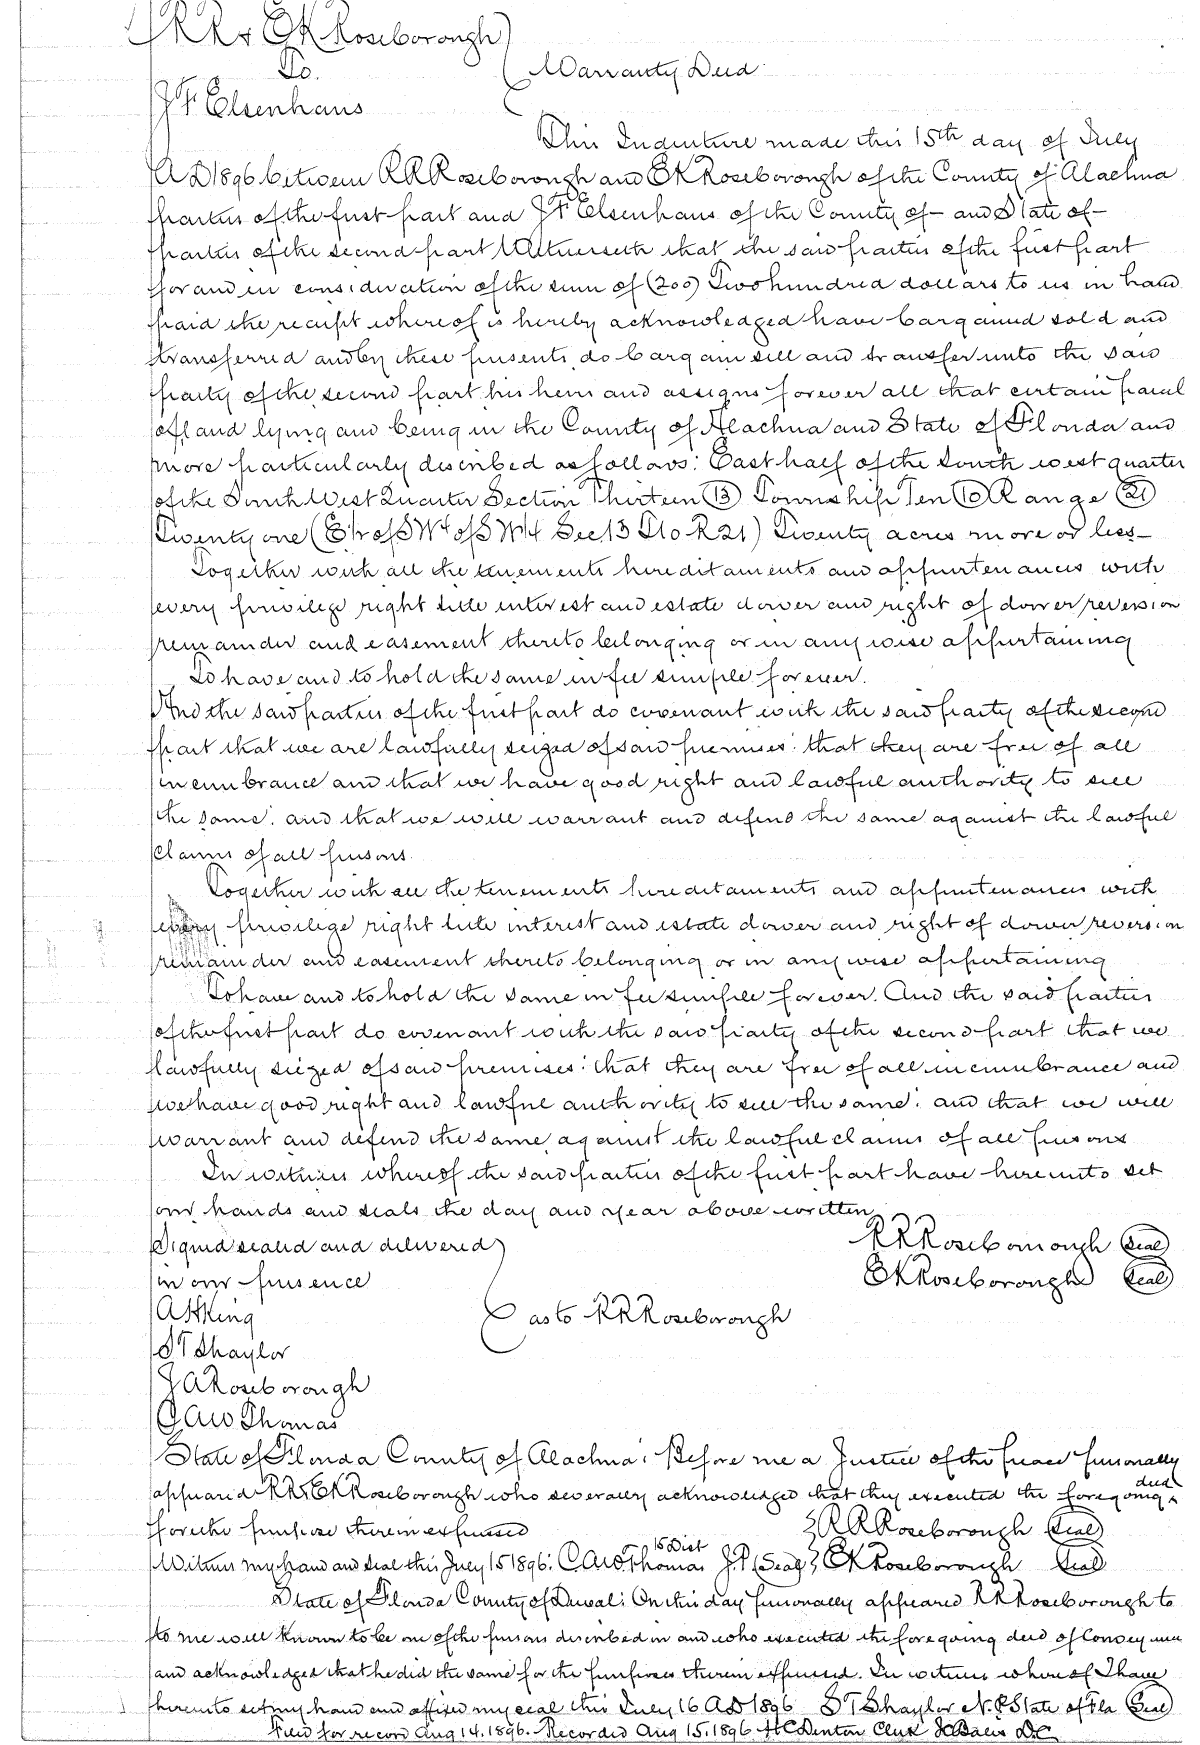 R R & E K Roseborough
To
Warranty Deed
J F Elsenhans
This Indenture made this 15th day of July
A D 1896 between R R Roseborough and E K Roseborough of the County of Alachua
parties of the first part and J F Elsenhans of the County of — and State of —
parties of the second part Witnesseth that the said parties of the first part
for and in consideration of the sum of (200) Two hundred dollars to us in hand
paid the receipt whereof is hereby acknowledged have bargained sold and
transferred and by these presents do bargain sell and transfer unto the said
party of the second part his heirs and assigns forever all that certain parcel
of land lying and being in the County of Alachua and State of Florida and
more particularly described as follows: East half of the South west quarter
of the South West Quarter Section Thirteen (13) Township Ten (10) Range (21)
Twenty one (E½ of SW¼ of SW¼ Sec 13 T10 R21) Twenty acres more or less—
Together with all the tenements hereditaments and appurtenances with
every privilege right title interest and estate dower and right of dower reversion
remainder and easement thereto belonging or in any wise appertaining
To have and to hold the same in fee simple forever.
And the said parties of the first part do covenant with the said party of the second
part that we are lawfully seized of said premises: that they are free of all
incumbrance and that we have good right and lawful authority to sell
the same: and that we will warrant and defend the same against the lawful
claims of all persons.
Together with all the tenements hereditaments and appurtenances with
every privilege right title interest and estate dower and right of dower reversion
remainder and easement thereto belonging or in any wise appertaining
To have and to hold the same in fee simple forever. And the said parties
of the first part do covenant with the said party of the second part that we
lawfully siezed of said premises: that they are free of all incumbrance and
we have good right and lawful authority to sell the same: and that we will
warrant and defend the same against the lawful claims of all persons
In witness whereof the said parties of the first part have hereunto set
our hands and seals the day and year above written
Signed sealed and delivered R R Roseborough (Seal)
in our presence E K Roseborough (Seal)
A H King as to R R Roseborough
S T Shaylor
J A Roseborough
C A W Thomas
State of Florida County of Alachua: Before me a Justice of the peace personally
appeared R R & E K Roseborough who severally acknowledged that they executed the foregoing deed
for the purpose therein expressed R R Roseborough (Seal)
Witness my hand and seal this July 15 1896: C A W Thomas J.P. 15 Dist (Seal) E K Roseborough (Seal)
State of Florida County of Duval: On this day personally appeared R R Roseborough to
to me well known to be one of the persons described in and who executed the foregoing deed of Conveyance
and acknowledged that he did the same for the purposes therein expressed. In witness whereof I have
hereunto set my hand and affixed my seal this July 16 A D 1896 S T Shaylor N.P. State of Fla (Seal)
Filed for record Aug 14. 1896. Recorded Aug 15. 1896 H C Denton Clerk D.C.